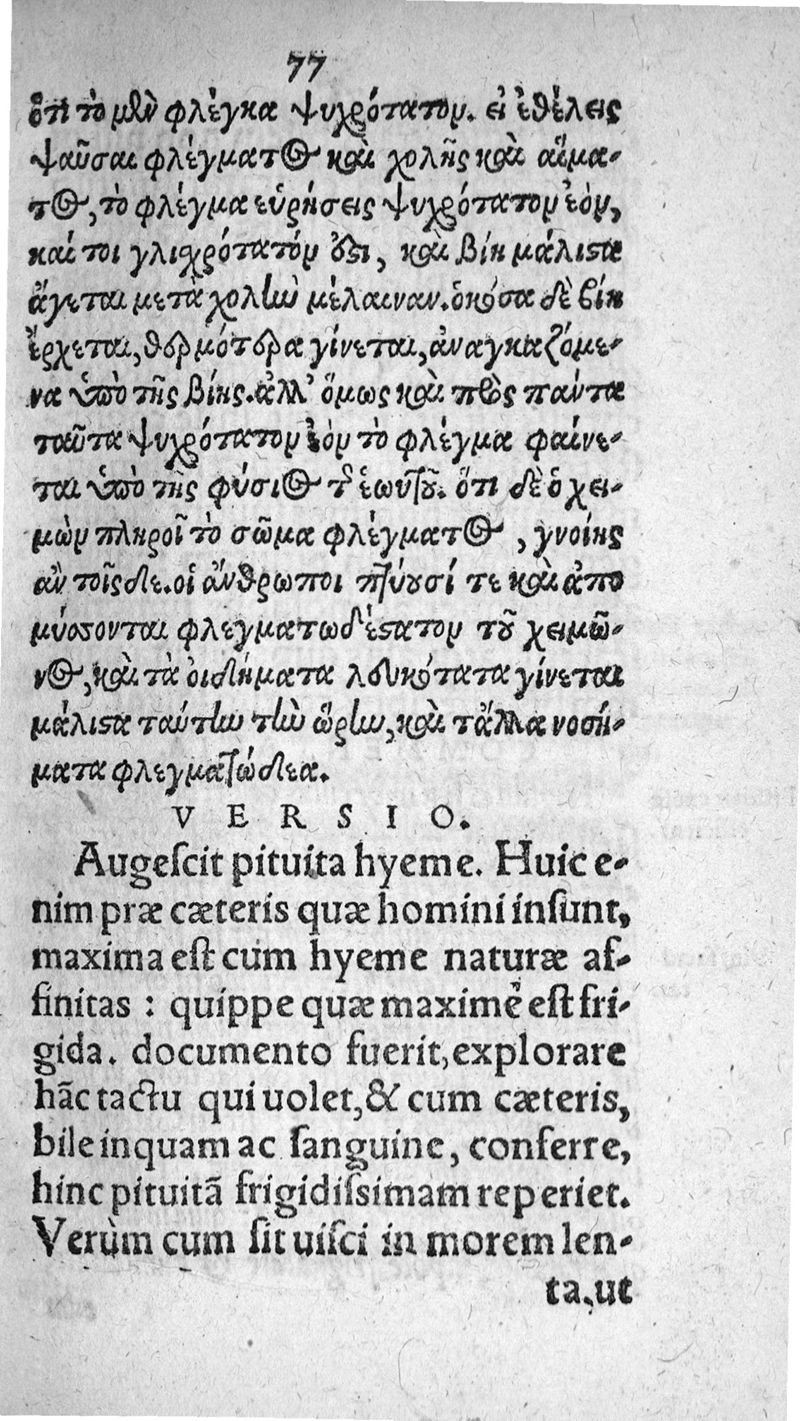 77
ὅτι τὸ μὲν φλέγκα ψυχρότατον. εἰ ἐθέλεις
ψαῦσαι φλέγματος καὶ χολῆς καὶ αἵμα-
τος, τὸ φλέγμα εὑρήσεις ψυχρότατον ἐὸν,
καί τοι γλιχρότατόν ὅστι, καὶ βίη μάλιστα
ἄγεται μετὰ χολὴν μέλαιναν. ὁκόσα δὲ βίη
ἔρχεται, θερμότερα γίνεται, ἀναγκαζόμε-
να ὑπὸ τῆς βίης. ἀλλ' ὅμως καὶ πρὸς πάντα
ταῦτα ψυχρότατον ἐὸν τὸ φλέγμα φαίνε-
ται ὑπὸ τῆς φύσιος τῆς ἑωυτοῦ. ὅτι δὲ ὁ χει-
μὼν πληροῖ τὸ σῶμα φλέγματος, γνοίης
ἂν τοῖσδε. οἱ ἄνθρωποι πτύουσί τε καὶ ἀπο
μύσσονται φλεγματωδέστατον τοῦ χειμῶ-
νος, καὶ τὰ οἰδήματα λευκότατα γίνεται
μάλιστα ταύτην τὴν ὥρην, καὶ τἄλλα νοσή-
ματα φλεγματώδεα.
VERSIO.
Augeſcit pituita hyeme. Huic e-
nim præ cæteris quæ homini inſunt,
maxima eſt cum hyeme naturæ af-
finitas : quippe quæ maximè eſt fri-
gida. documento fuerit, explorare
hāc tactu qui uolet, & cum cæteris,
bile inquam ac ſanguine, conferre,
hinc pituitā frigidiſsimam reperiet.
Verùm cum ſit uiſci in morem len-
ta, ut